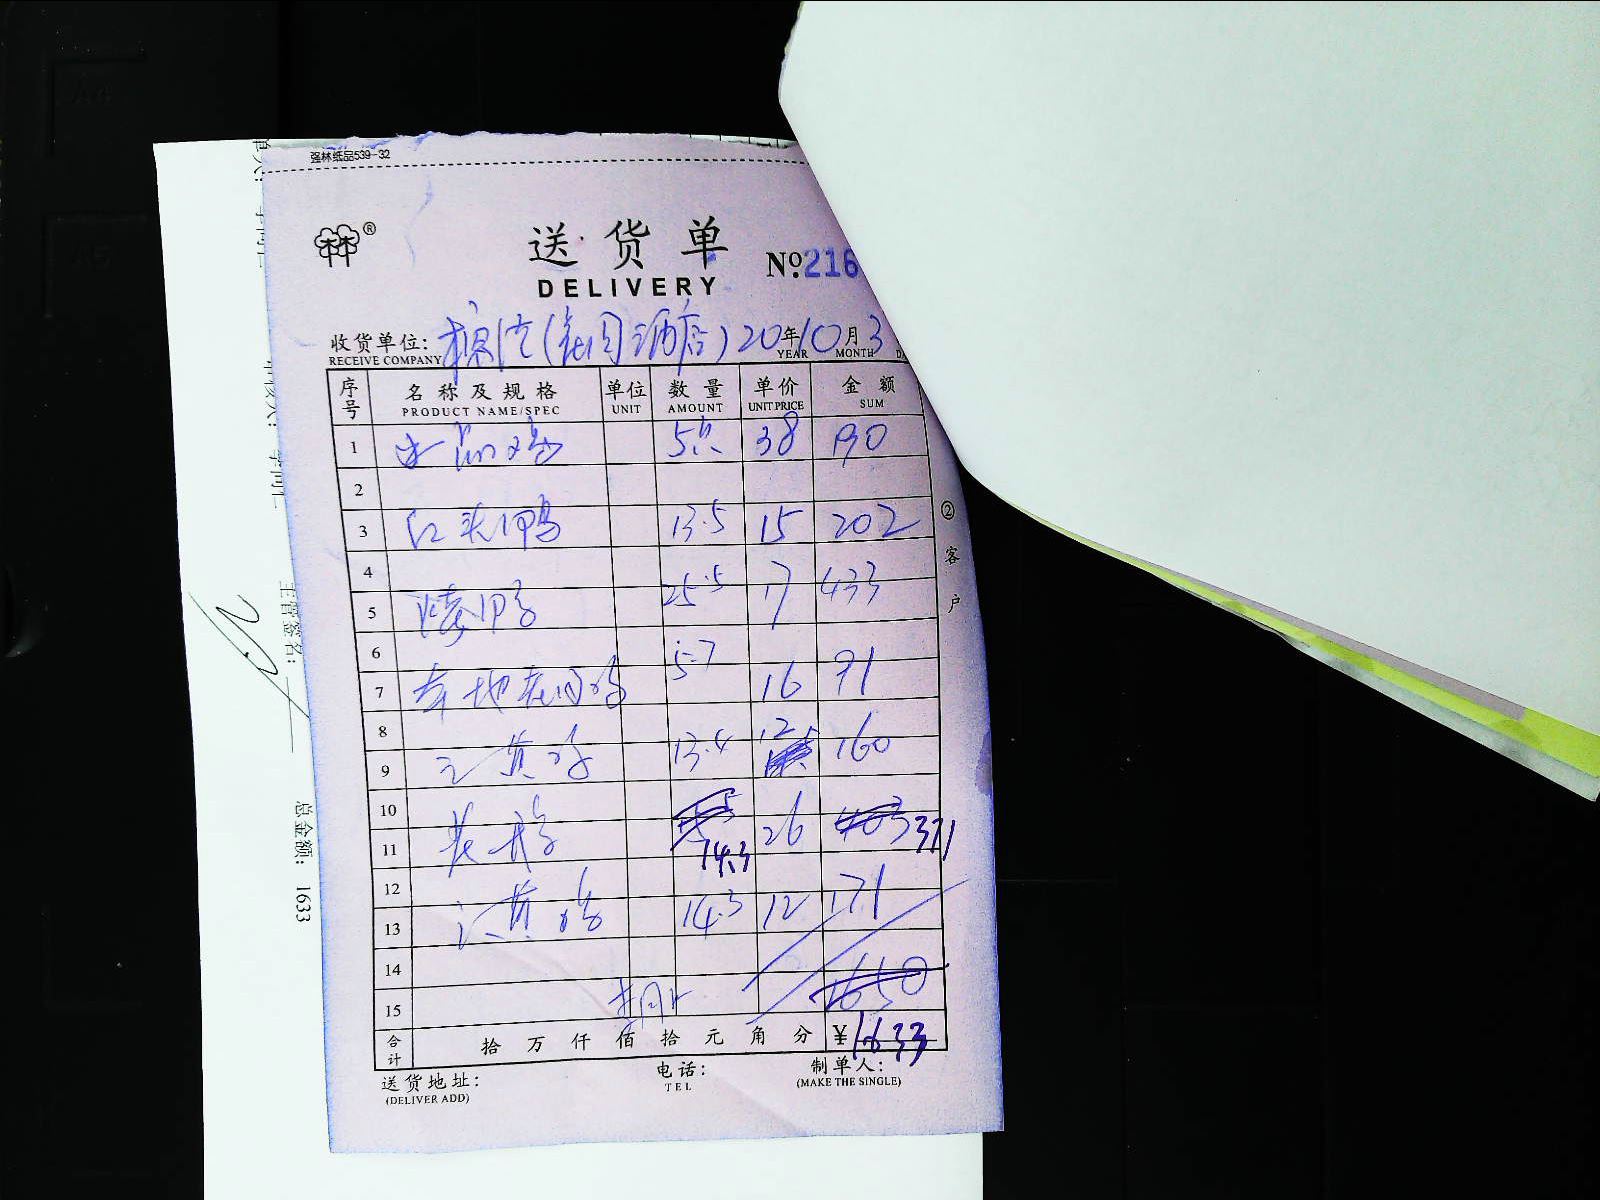 强林纸品539-32
送货单
№216
DELIVERY
收货单位: 20年10月3
RECEIVE COMPANY YEAR MONTH
序号 名称及规格 单位 数量 单价 金额
PRODUCT NAME/SPEC UNIT AMOUNT UNIT PRICE SUM
1 38 190
2
3 红头鸭 13.5 15 202
4
5 25.5 17 433
6
7 本地 5.7 16 91
8
9 三黄鸡 13.4 12 160
10
11 14.3 26 371
12
13 三黄鸡 14.3 12 171
14
15 1650
合计 拾万仟佰拾元角分 ¥1633
送货地址: 电话: 制单人:
(DELIVER ADD) TEL (MAKE THE SINGLE)
②客户
主管签名:
总金额: 1633